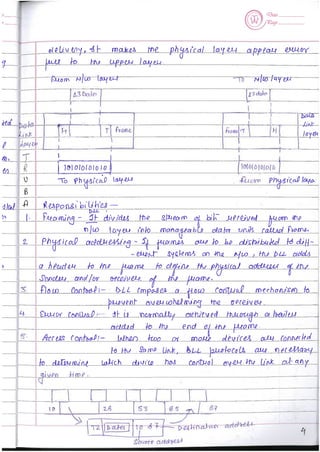 Date
Page
delivery. It makes the physical layer appear error
free to the upper layer.
From N/W layer
To N/W layer
L3 Data
L3 data
Data
Link
layer
H
T
Frame
Frame
T
H
Data
Link
layer
T
R
U
B
A
10101010101
10101010
To Physical layer
From Physical layer
Responsibilities —
1. Framing - It divides the stream of bits received from the
DLL
n/w layer into manageable data units called frame.
2. Physical addressing - If frames are to be distributed to diff-
-erent systems on the n/w, the DLL adds
a header to the frame to define the physical address of the
Sender and/or receiver of the frame.
3. Flow Control:- DLL imposes a flow control mechanism to
prevent overwhelming the receiver.
4. Error control - It is normally achieved through a trailer
added to the end of the frame
5. Access Control:- When two or more devices are connected
to the same link, DLL protocols are necessary
to determine which device has control over the link at any
given time.
10
28
53
65
87
T2
Data
10
87
Destination address
Source address
4